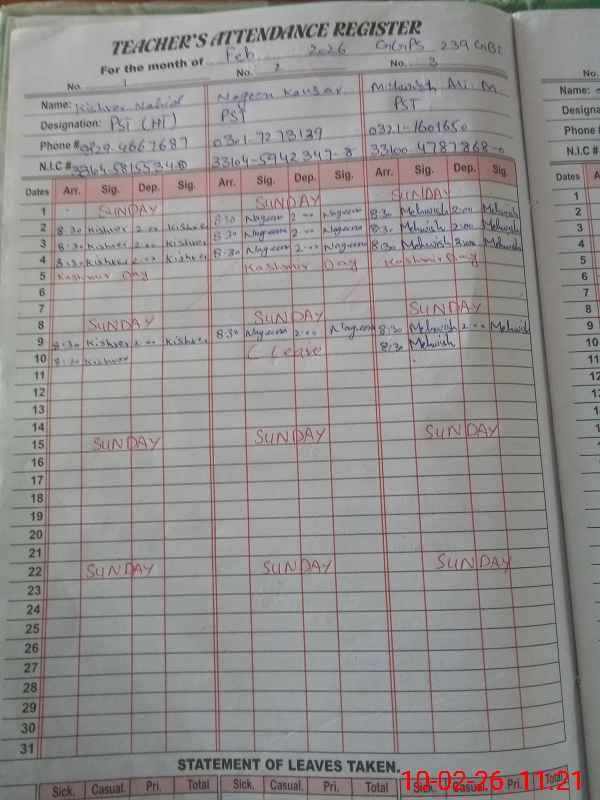 TEACHER'S ATTENDANCE REGISTER
For the month of Feb 2026 GGPS 239 GB
No. 1 No. 2 No. 3 No.
Name: Kishver Nahid Nageen Kousar Mehwish Ali M
Designation: PST (HT) PST PST Designa
Phone # 0301-7273139 0321-1601650 Phone #
N.I.C # 33104-5942347-8 33100 4787868-0 N.I.C #
Dates Arr. Sig. Dep. Sig. Arr. Sig. Dep. Sig. Arr. Sig. Dep. Sig. Dates A
1 SUNDAY SUNDAY SUNDAY 1
2 8:30 Kishver 2:00 Kishver 8:30 Nageen 2:00 Nageen 8:30 Mehwish 2:00 Mehwish 2
3 8:30 Kishver 2:00 Kishver 8:30 Nageen 2:00 Nageen 8:30 Mehwish 2:00 Mehwish 3
4 8:30 Kishver 2:00 Kishver 8:30 Nageen 2:00 Nageen 8:30 Mehwish 2:00 Mehwish 4
5 Kashmir Day Kashmir Day Kashmir Day 5
6 6
7 7
8 SUNDAY SUNDAY SUNDAY 8
9 8:30 Kishver 2:00 Kishver 8:30 Nageen 2:00 Nageen 8:30 Mehwish 2:00 Mehwish 9
10 8:30 Kishver C Leave 8:30 Mehwish 10
11 11
12 12
13 13
14 14
15 SUNDAY SUNDAY SUNDAY 15
16 16
17 17
18 18
19 19
20 20
21 21
22 SUNDAY SUNDAY SUNDAY 22
23 23
24 24
25 25
26 26
27 27
28 28
29 29
30 30
31 31
STATEMENT OF LEAVES TAKEN.
Sick. Casual. Pri. Total Sick. Casual. Pri. Total Sick. Casual. Pri. Total Sick.
10-02-26 11:21